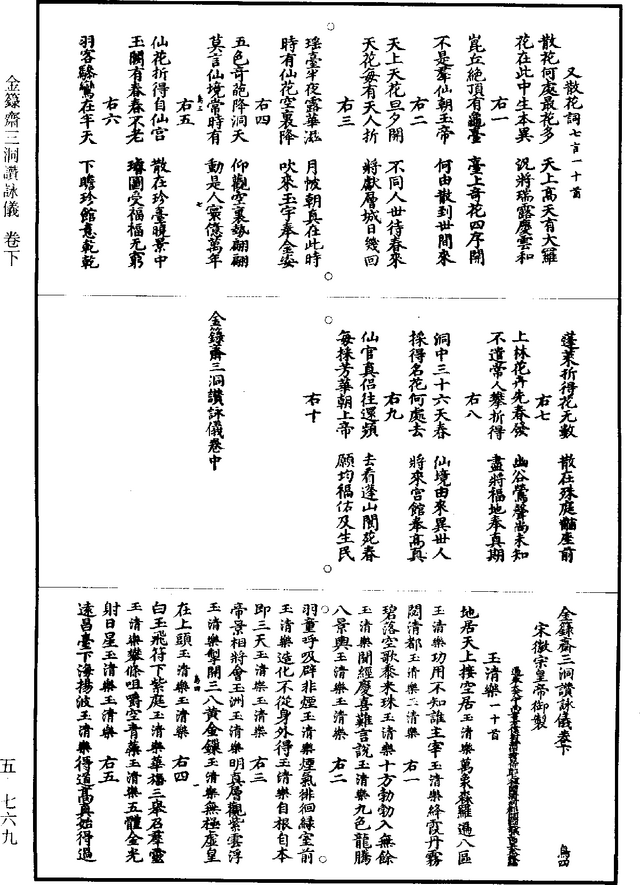 金籙齋三洞讚詠儀 卷下
又散花詞七言一十首
散花何處最花多 天上高天有大羅
花在此中生本異 況將瑞露慶雲和
右一
崑丘絶頂有龜臺 臺上奇花四序開
不是羣仙朝玉帝 何由散到世間來
右二
天上天花旦夕開 不同人世待春來
天花每有天人折 將獻層城日幾回
右三
瑶臺半夜露華滋 月帔朝真在此時
時有仙花空裏降 吹來玉宇奉金姿
右四
五色奇葩降洞天 仰觀空裏勢翩翩
莫言仙境常時有 動是人寰億萬年
右五
仙花折得自仙宫 散在珍臺曉景中
玉闕有春春不老 璿圖受福福无窮
右六
羽客驂鸞在半天 下瞻珍館意乾乾
蓬萊折得花无數 散在珠庭黼座前
右七
上林花卉先春發 幽谷鶯聲尚未知
不遣常人攀折得 盡將福地奉真期
右八
洞中三十六天春 仙境由來異世人
採得名花何處去 將來宫館奉高真
右九
仙官真侣往還頻 去看蓬山閬苑春
每採芳華朝上帝 願均福佑及生民
右十
金籙齋三洞讚詠儀卷中
金籙齋三洞讚詠儀卷下
鳥四
宋徽宗皇帝御製
玉清樂一十首
地居天上接空居玉清樂萬象森羅遍八區
玉清樂功用不知誰主宰玉清樂絳霞丹霧
闊清都玉清樂玉清樂 右一
碧落空歌黍米珠玉清樂十方勃勃入無餘
玉清樂聞經慶喜難言説玉清樂九色龍騰
八景輿玉清樂玉清樂 右二
羽童呼吸辟非煙玉清樂煙氣徘徊緑室前
玉清樂造化不從身外得玉清樂自根自本
即三天玉清樂玉清樂 右三
帝景相將會玉洲玉清樂明真層觀紫雲浮
玉清樂掣開三八黄金鏁玉清樂無極虚皇
在上頭玉清樂玉清樂 右四
白玉飛符下紫庭玉清樂華旛三舉召羣靈
玉清樂攀條咀嚼空青蘂玉清樂五體金光
射日星玉清樂玉清樂 右五
遠昌臺下海揚波玉清樂得道高真始得過
五 七六九